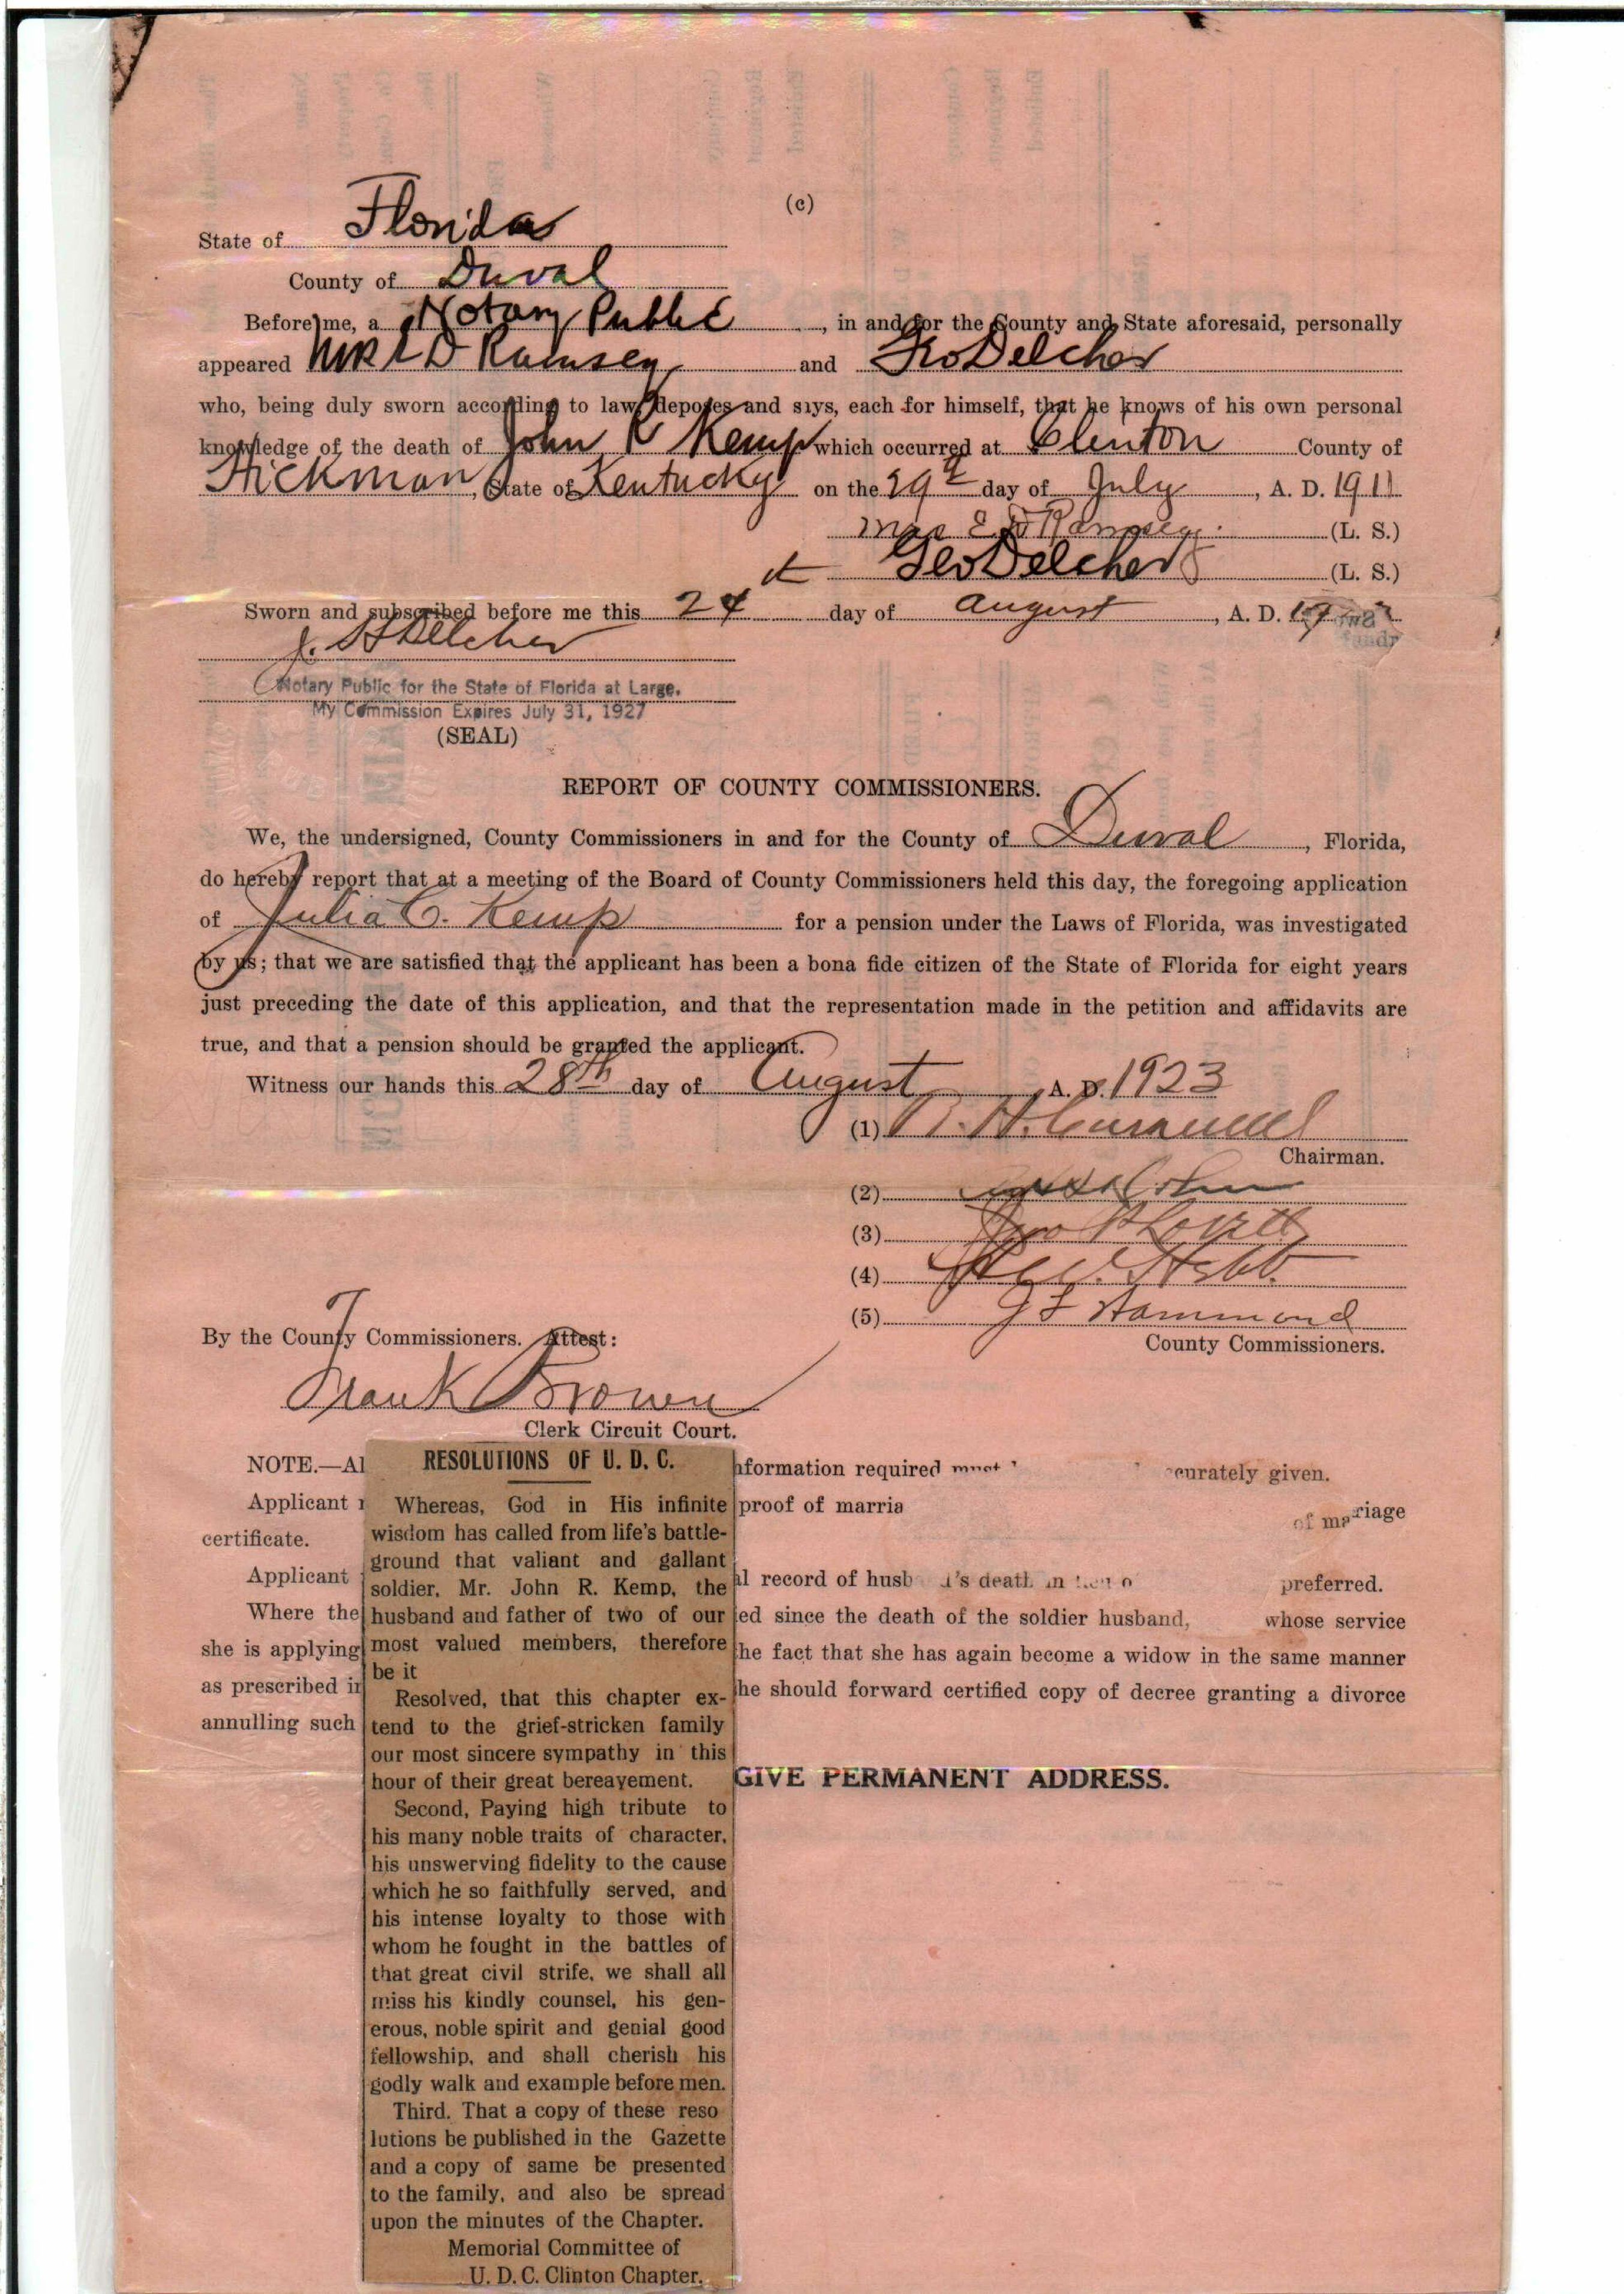 (c)
State of Florida
County of Duval
Before me, a Notary Public, in and for the County and State aforesaid, personally
appeared Mrs E D Ramsey and Geo Delcher
who, being duly sworn according to law, deposes and says, each for himself, that he knows of his own personal
knowledge of the death of John R Kemp which occurred at Clinton County of
Hickman, State of Kentucky on the 29th day of July, A. D. 1911
Mrs E D Ramsey (L. S.)
Geo Delcher (L. S.)
Sworn and subscribed before me this 24 day of August, A. D.
Delcher
Notary Public for the State of Florida at Large.
My Commission Expires July 31, 1927
(SEAL)
REPORT OF COUNTY COMMISSIONERS.
We, the undersigned, County Commissioners in and for the County of Duval, Florida,
do hereby report that at a meeting of the Board of County Commissioners held this day, the foregoing application
of Julia C. Kemp for a pension under the Laws of Florida, was investigated
by us; that we are satisfied that the applicant has been a bona fide citizen of the State of Florida for eight years
just preceding the date of this application, and that the representation made in the petition and affidavits are
true, and that a pension should be granted the applicant.
Witness our hands this 28th day of August A. D. 1923
(1) R. H.
Chairman.
(2)
(3)
(4)
(5) J F Hammond
County Commissioners.
By the County Commissioners. Attest:
Frank Brown
Clerk Circuit Court.
NOTE.—Al nformation required must curately given.
Applicant proof of marria of marriage
certificate.
Applicant al record of husb d's death in preferred.
Where the ed since the death of the soldier husband, whose service
she is applying he fact that she has again become a widow in the same manner
as prescribed in he should forward certified copy of decree granting a divorce
annulling such
GIVE PERMANENT ADDRESS.
RESOLUTIONS OF U. D. C.
Whereas, God in His infinite
wisdom has called from life's battle-
ground that valiant and gallant
soldier, Mr. John R. Kemp, the
husband and father of two of our
most valued members, therefore
be it
Resolved, that this chapter ex-
tend to the grief-stricken family
our most sincere sympathy in this
hour of their great bereavement.
Second, Paying high tribute to
his many noble traits of character,
his unswerving fidelity to the cause
which he so faithfully served, and
his intense loyalty to those with
whom he fought in the battles of
that great civil strife, we shall all
miss his kindly counsel, his gen-
erous, noble spirit and genial good
fellowship, and shall cherish his
godly walk and example before men.
Third. That a copy of these reso
lutions be published in the Gazette
and a copy of same be presented
to the family, and also be spread
upon the minutes of the Chapter.
Memorial Committee of
U. D. C. Clinton Chapter.